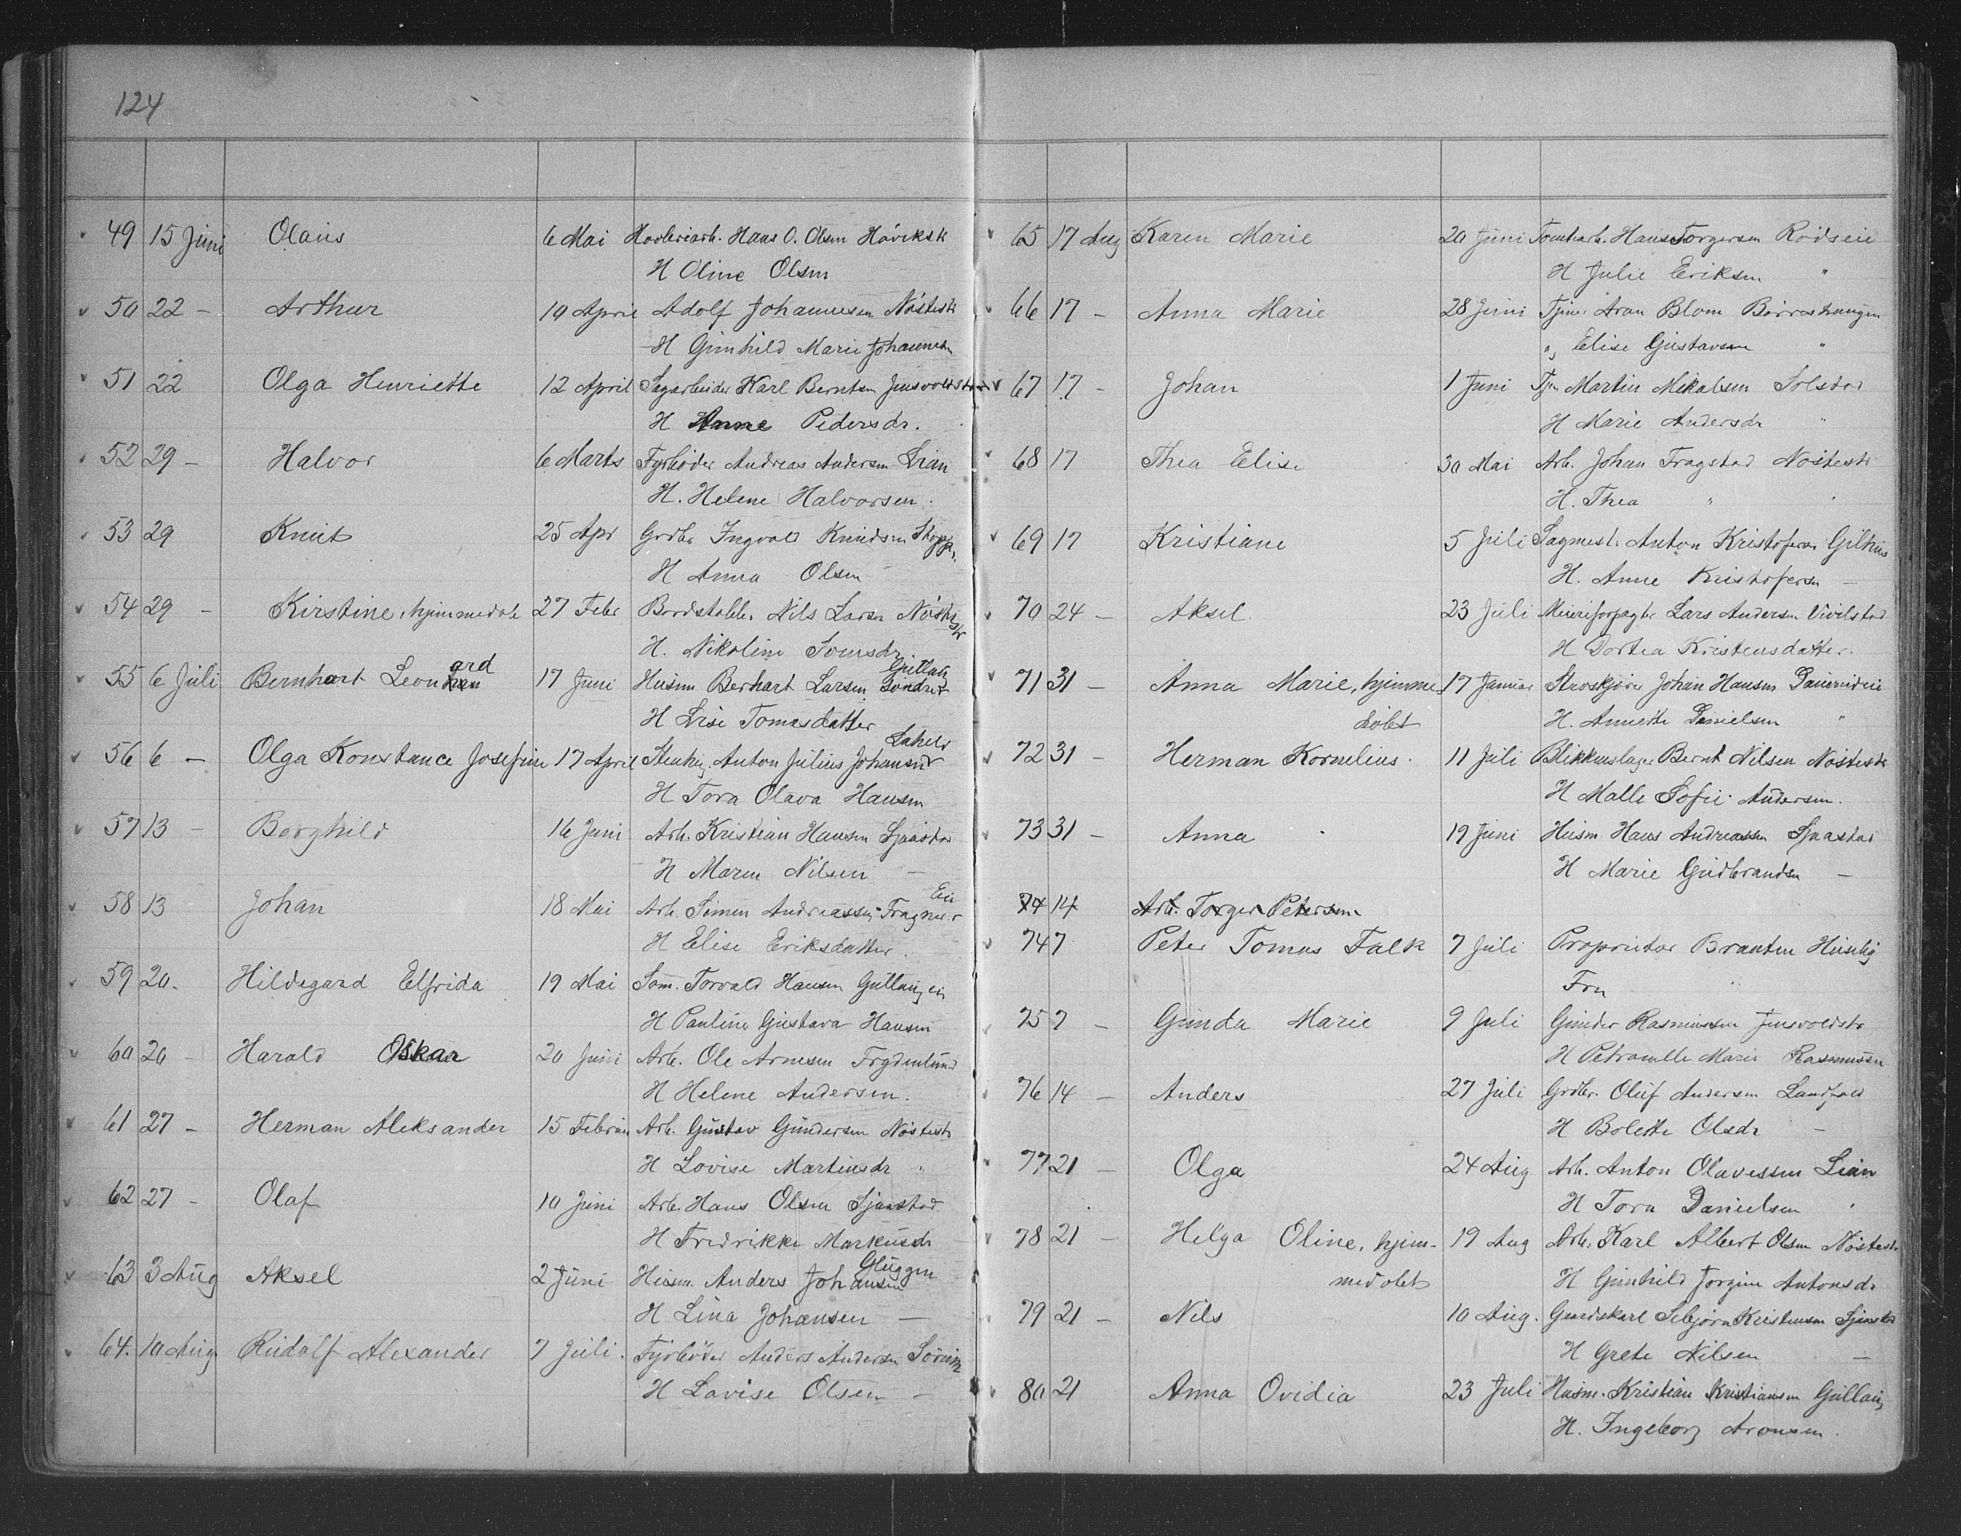 124
49 15 Juni Olaus 6 Mai Høvleriarb. Hans O. Olsen Høviksk
H Oline Olsen
50 22 - Arthur 10 April Adolf Johannesen Nøstestr
H Gunhild Marie Johannesen
51 22 Olga Henriette 12 April Sagarbeider Karl Berntsen
H Anne Pedersdr.
52 29 - Halvor 6 Marts Fyrbøder Andreas Andersen Lian
H. Helene Halvorsen.
53 29 Knut 25 Apr Grdbr Ingvald Knudsen Stopp.
H Anna Olsen
54 29 - Kirstine, hjemmedøbt 27 Febr Bordstabler Nils Larsen Nøstestr
H. Nikoline
55 6 Juli Bernhart Leonard 17 Juni Husm Berhart Larsen Gullaug
H Lise Tomasdatter
56 6 - Olga Konstance Josefine 17 April Stenhug. Anton Julius Johansen
H Tora Olava Hansen
57 13 - Borghild 16 Juni Arb. Kristian Hansen Sjaastad
H Maren Nilsen -
58 13 Johan 18 Mai Arb. Simen Andreassen Fragner Eie
H Elise Eriksdatter.
59 20. Hildegard Elfrida 19 Mai Søm. Torvald Hansen Gullaug ei
H Pauline Gustava Hansen
60 20 - Harald Oskar 20 Juni Arb. Ole Arnesen Frydenlund
H Helene Andersen.
61 27 - Herman Aleksander 15 Februar Arb. Gustav Gundersen Nøstestr
H Lovise Martinsdr "
62 27 - Olaf 10 Juni Arb. Hans Olsen Sjaastad
H Fredrikke Markusdr -
63 3 Aug Aksel 2 Juni Husm. Anders Johansen Gluggen
H Lina Johansen -
64. 10 Aug Rudolf Alexander 7 Juli. Fyrbøder Anders Andersen
H Lovise Olsen -
65 17 Aug Karen Marie 20 Juni Tomtearb. Hans Torgersen Rødseie
H Julie Eriksen "
66 17 - Anna Marie 28 Juni Tjener Aron Blom Børreshaugen
" Elise Gustavsen "
67 17 - Johan 1 Juni Tjen Martin Mikalsen Solstad
H Marie Andersdr "
68 17 Thea Elise 30 Mai Arb. Johan Fragstad Nøstestr
H. Thea " "
69 17 Kristiane 5 Juli Sagmest. Anton Kristofersen Gilhus
H. Anne Kristofersen -
70 24 - Aksel. 23 Juli Meieriforpagter Lars Andersen Vivilstad
H Dortea Kristensdatter.
71 31 - Anna Marie, hjemme- 17 Januar Johan Hansen
døbt H. Annette Danielsen "
72 31 - Herman Kornelius. 11 Juli Blikkenslager Bernt Nilsen Nøstestr
H Malle Sofie Andersen.
73 31 - Anna 19 Juni Husm Hans Andreassen Sjaastad
H Marie Gudbrandsen -
74 14 Arb. Torger Petersen
74 7 Peter Tomas Falk 7 Juli Proprietær Braaten Huseby
Fru "
75 7 - Gunda Marie 9 Juli Gunder Rasmussen Jensvoldstr
H Petronelle Marie Rasmussen
76 14 - Anders 27 Juli Grdbr. Oluf Andersen Landfald
H Bolette Olsdr -
77 21 - Olga 24 Aug Arb. Anton Olavessen Lian
H Tora Danielsen "
78 21 - Helga Oline, hjem- 19 Aug Arb. Karl Albert Olsen Nøstestr
medøbt H Gunhild Jorgine Antonsdr
79 21 - Nils 10 Aug. Gaardskarl Sebjørn Kristensen Sjaastad
H Grete Nilsen -
80 21 Anna Ovidia 23 Juli Husm. Kristian Kristiansen Gullaug
H. Ingeborg Aronsen.